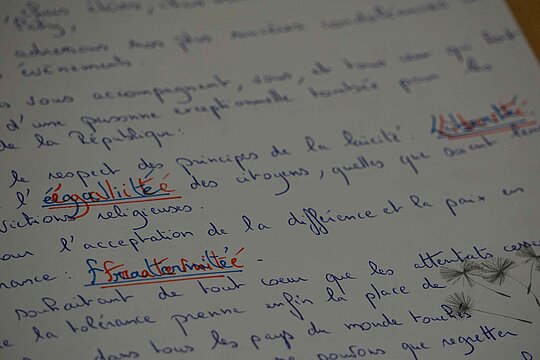 adressons nos plus sincères condoléances
événements.
vous accompagnent, vous, et tous ceux qui
d'une personne exceptionnelle tombée pour les
de la République:
le respect des principes de la laïcité: Liberté
l'égalité des citoyens, quelles que soient leurs
religieuses.
l'acceptation de la différence et la paix en
: fraternité -
souhaitant de tout coeur que les attentats
la tolérance prenne enfin la place de
dans tous les pays du monde touchés
pouvons que regretter